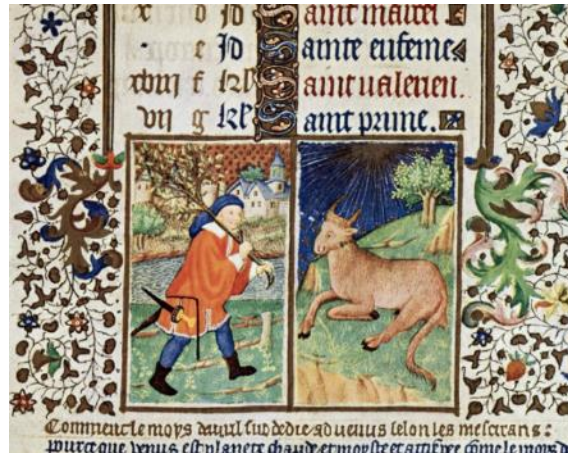 x o Id Saint marcel
e Id Sainte eufeme
xviii f kl Saint valerien.
vii g kl Saint prune.
Comment le moys davril fu dedie a venus selon les mescreans :
pource que venus est planete chaude et moyste et come le mois d